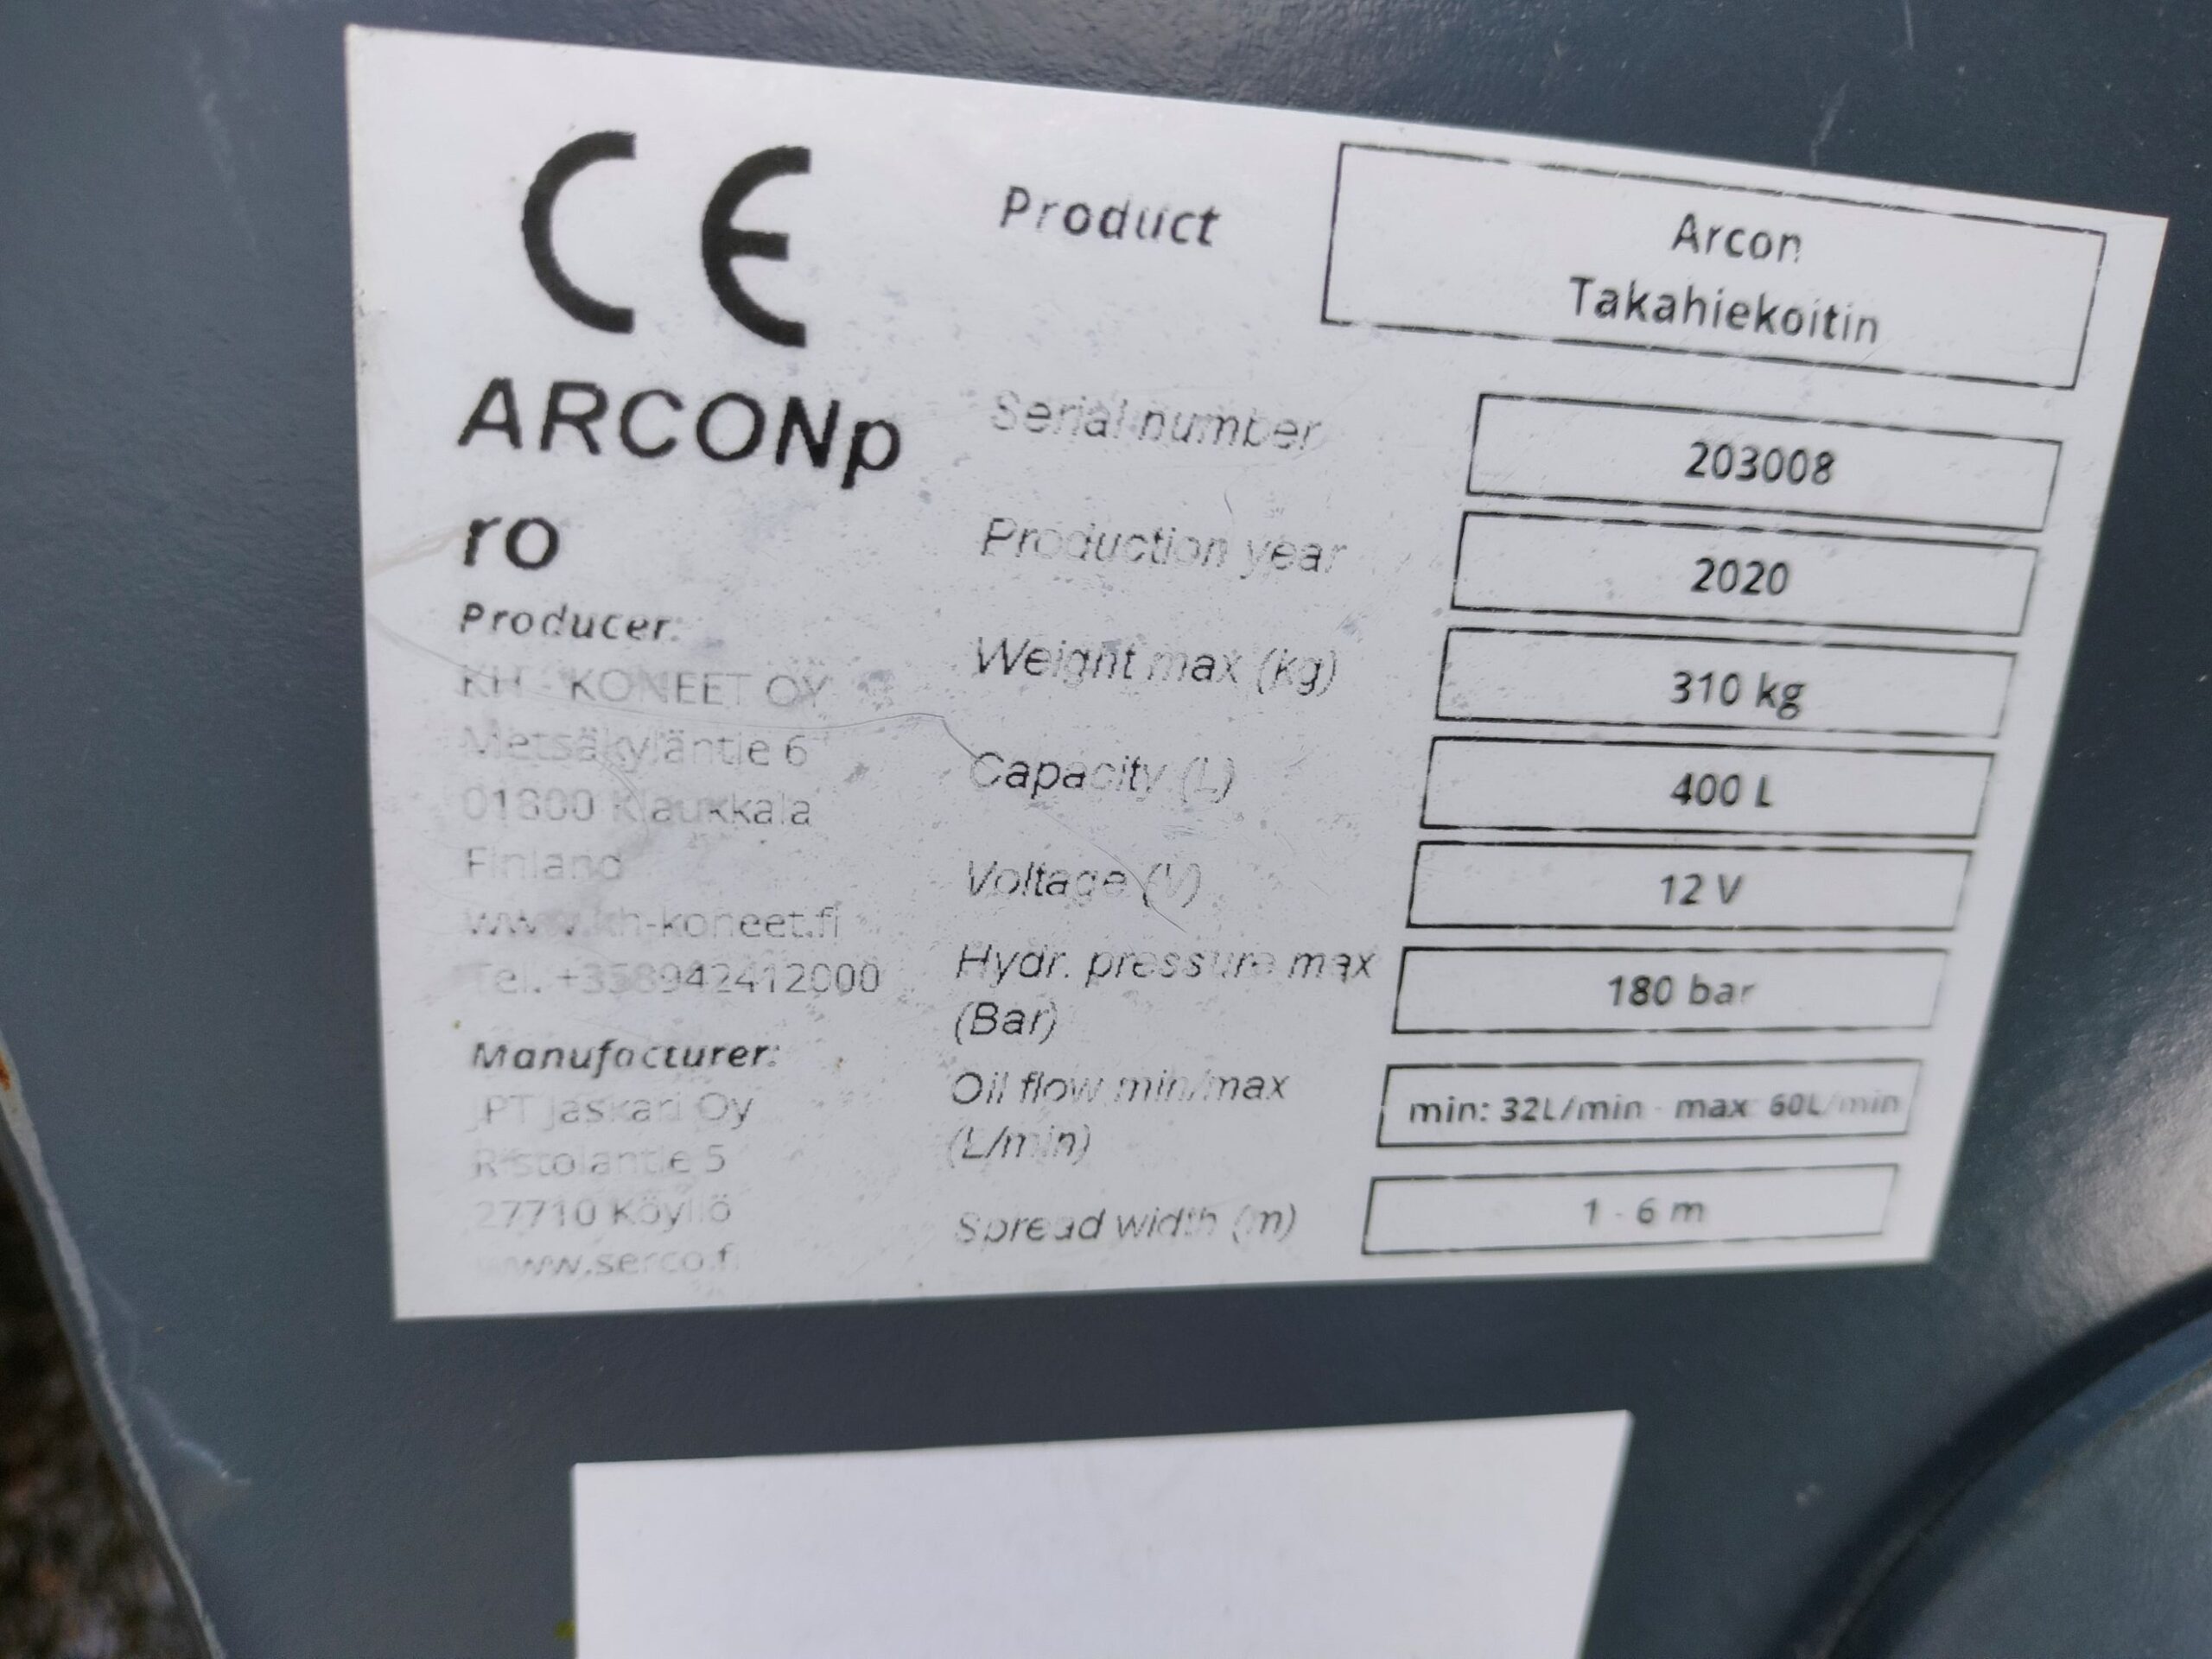 CE
ARCONp
ro
Producer:
KH - KONEET OY
Metsäkyläntie 6
01800 Klaukkala
Finland
www.kh-koneet.fi
Tel. +358942412000
Manufacturer:
JPT Jaskari Oy
Ristolantie 5
27710 Köyliö
www.serco.fi
Product
Arcon
Takahiekoitin
Serial number
203008
Production year
2020
Weight max (kg)
310 kg
Capacity (L)
400 L
Voltage (V)
12 V
Hydr. pressure max
(Bar)
180 bar
Oil flow min/max
(L/min)
min: 32L/min - max: 60L/min
Spread width (m)
1 - 6 m